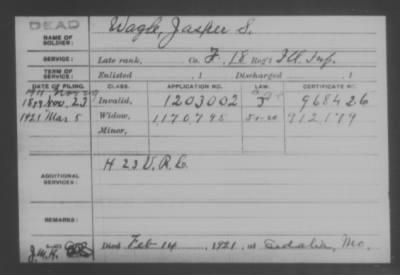 DEAD
NAME OF SOLDIER: Wagle, Jasper S.
SERVICE: Late rank, Co. F, 18 Reg't Ill. Inf.
TERM OF SERVICE: Enlisted , 1 Discharged , 1
DATE OF FILING. CLASS. APPLICATION NO. LAW. CERTIFICATE NO.
1897 Nov. 23 Invalid, 1203002 968426
1921 Mar 5 Widow, 1,170,795 912179
Minor,
ADDITIONAL SERVICES: H 23 V.R.C.
REMARKS:
J.M.H. Died Feb 14 , 1921, at Sedalia, Mo.